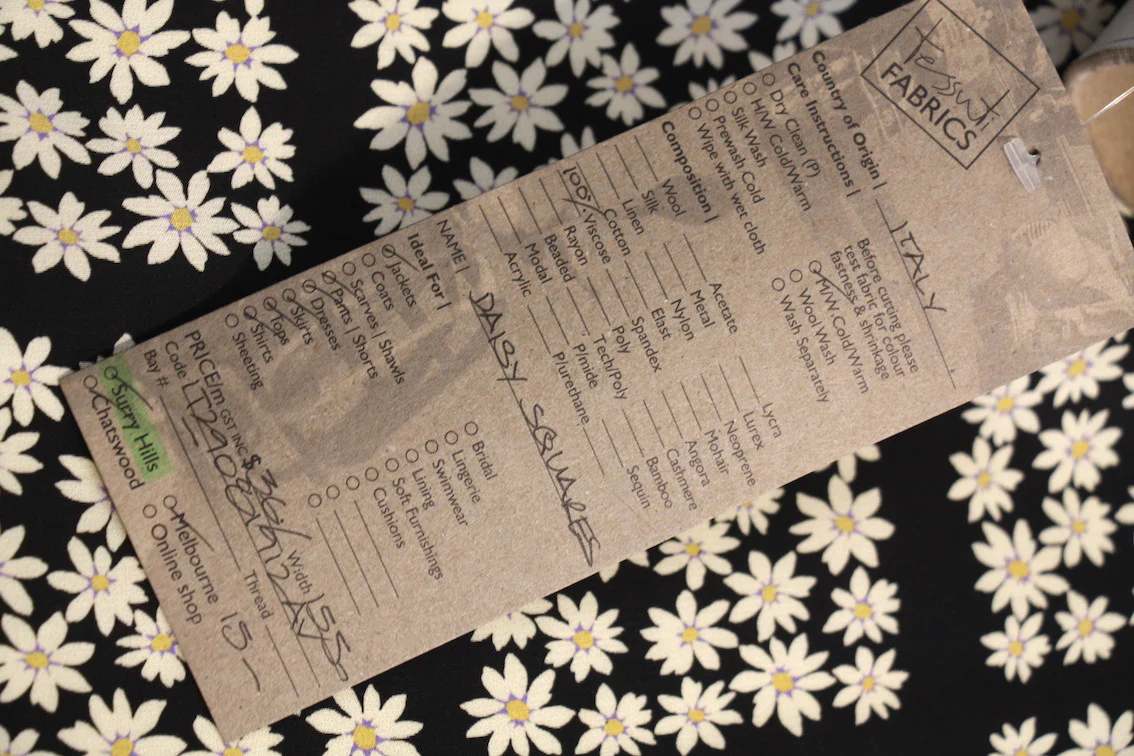 tessuti
FABRICS
Country of Origin | ITALY
Care Instructions |
Dry Clean (P)
H/W Cold/Warm
Silk Wash
Prewash Cold
Wipe with wet cloth
Before cutting please
test fabric for colour
fastness & shrinkage
M/W Cold/Warm
Wool Wash
Wash Separately
Composition |
Wool
Silk
Linen
Cotton
100% Viscose
Rayon
Beaded
Modal
Acrylic
Acetate
Metal
Nylon
Elast
Spandex
Poly
Tech/Poly
P/mide
P/urethane
Lycra
Lurex
Neoprene
Mohair
Angora
Cashmere
Bamboo
Sequin
NAME | DAISY SQUARES
Ideal For |
Jackets
Coats
Scarves | Shawls
Pants | Shorts
Dresses
Skirts
Tops
Shirts
Sheeting
Bridal
Lingerie
Swimwear
Lining
Soft Furnishings
Cushions
PRICE/m GST INC $ Width 155
Code
Bay # Thread
Surry Hills
Chatswood
Melbourne 15-
Online shop